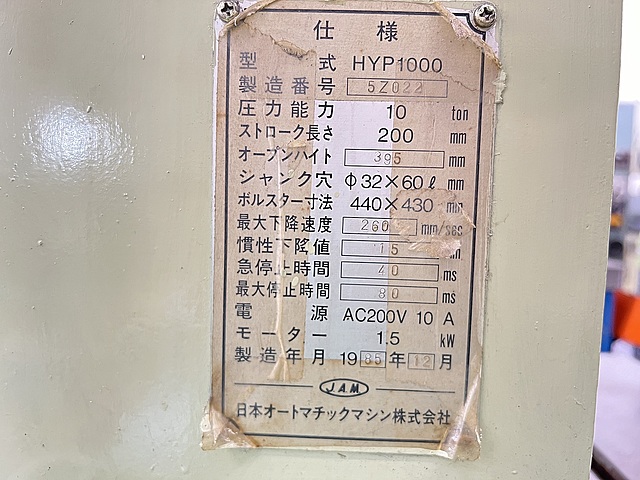 仕様
型式 HYP1000
製造番号 5Z022
圧力能力 10 ton
ストローク長さ 200 mm
オープンハイト 395 mm
シャンク穴 φ32×60ℓ mm
ボルスター寸法 440×430 mm
最大下降速度 260 mm/sec
慣性下降値 15
急停止時間 40 ms
最大停止時間 80 ms
電源 AC200V 10 A
モーター 1.5 kW
製造年月 1985年12月
JAM
日本オートマチックマシン株式会社